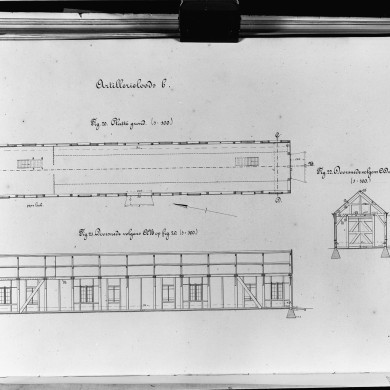 Artillerieloods 6.
Fig. 20. Platte grond. (1:100.)
C
D
Fig. 21. Doorsnede volgens A B op fig 20. (1:100.)
Fig. 22. Doorsnede volgens C D
(1:100.)